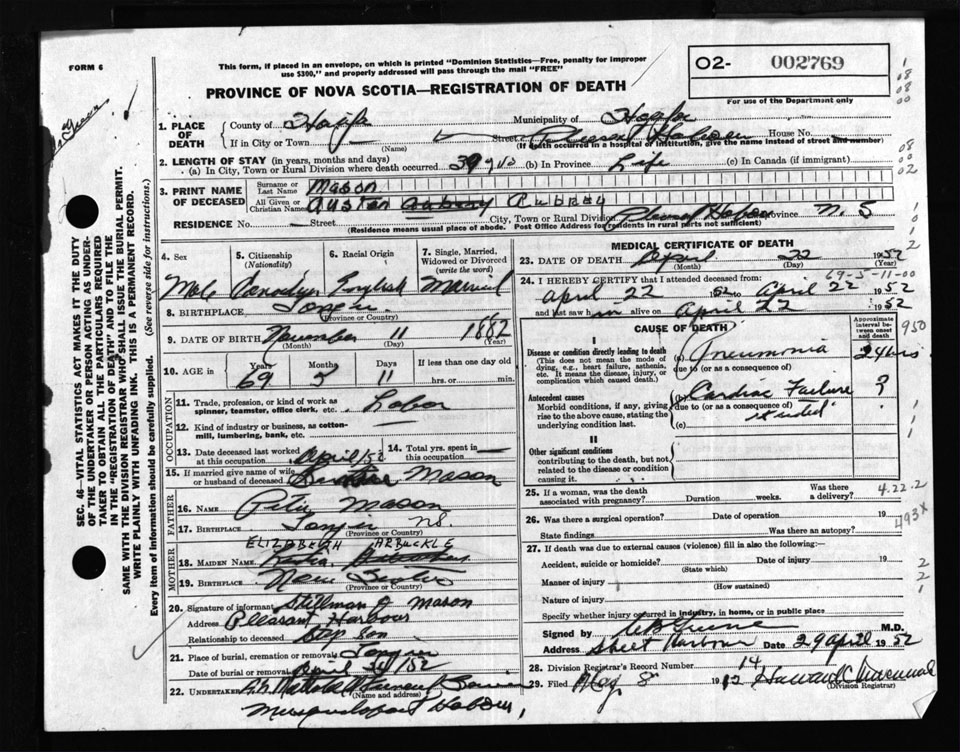 FORM 6
This form, if placed in an envelope, on which is printed "Dominion Statistics—Free, penalty for improper
use $300," and properly addressed will pass through the mail "FREE"
O2- 002769
PROVINCE OF NOVA SCOTIA—REGISTRATION OF DEATH
For use of the Department only
1. PLACE OF DEATH
County of Municipality of
If in City or Town (Name) Street Pleasant Harbour House No.
(If death occurred in a hospital or institution, give the name instead of street and number)
2. LENGTH OF STAY (in years, months and days)
(a) In City, Town or Rural Division where death occurred 39 yrs (b) In Province Life (c) In Canada (if immigrant)
3. PRINT NAME OF DECEASED
Surname or Last Name Mason
All Given or Christian Names Austen Aubery Aubrey
RESIDENCE No. Street City, Town or Rural Division Pleasant Harbour Province N. S
(Residence means usual place of abode. Post Office Address for residents in rural parts not sufficient)
4. Sex Male
5. Citizenship (Nationality) Canadian
6. Racial Origin English
7. Single, Married, Widowed or Divorced (write the word) Married
8. BIRTHPLACE Tangier
(Province or Country)
9. DATE OF BIRTH November 11 1882
(Month) (Day) (Year)
10. AGE in Years Months Days If less than one day
69 5 11 hrs. or min.
OCCUPATION
11. Trade, profession, or kind of work as spinner, teamster, office clerk, etc. Labor
12. Kind of industry or business, as cotton-mill, lumbering, bank, etc.
13. Date deceased last worked at this occupation April/52
14. Total yrs. spent in this occupation
15. If married give name of wife or husband of deceased Mason
FATHER
16. NAME Peter Mason
17. BIRTHPLACE Tangier NS.
(Province or Country)
MOTHER
ELIZABETH ARBUCKLE
18. MAIDEN NAME
19. BIRTHPLACE Nova Scotia
(Province or Country)
20. Signature of informant Stillman J Mason
Address Pleasant Harbour
Relationship to deceased Step Son
21. Place of burial, cremation or removal Tangier
Date of burial or removal April /52
22. UNDERTAKER
(Name and address)
Musquodoboit Harbour,
MEDICAL CERTIFICATE OF DEATH
23. DATE OF DEATH April 22 1952
(Month) (Day) (Year)
69-5-11-00
24. I HEREBY CERTIFY that I attended deceased from:
April 22 1952 to April 22 1952
and last saw h im alive on April 22 1952
CAUSE OF DEATH
Approximate interval between onset and death
I
Disease or condition directly leading to death (a) Pneumonia 24 hrs
(This does not mean the mode of dying, e.g., heart failure, asthenia, etc. It means the disease, injury, or complication which caused death.)
due to (or as a consequence of)
Antecedent causes (b) Cardiac Failure ?
Morbid conditions, if any, giving rise to the above cause, stating the underlying condition last.
due to (or as a consequence of)
(c)
II
Other significant conditions contributing to the death, but not related to the disease or condition causing it.
25. If a woman, was the death associated with pregnancy? Duration weeks. Was there a delivery?
4.22.2
26. Was there a surgical operation? Date of operation 19
State findings Was there an autopsy?
493x
27. If death was due to external causes (violence) fill in also the following:—
Accident, suicide or homicide? (State which) Date of injury 19
Manner of injury
(How sustained)
Nature of injury
Specify whether injury occurred in industry, in home, or in public place
Signed by M.D.
Address Sheet Harbour Date 29 April 1952
28. Division Registrar's Record Number 14
29. Filed May 8 19
(Division Registrar)
SEC. 46—VITAL STATISTICS ACT MAKES IT THE DUTY
OF THE UNDERTAKER OR PERSON ACTING AS UNDER-
TAKER TO OBTAIN ALL THE PARTICULARS REQUIRED
IN THE "REGISTRATION OF DEATH" AND TO FILE THE
SAME WITH THE DIVISION REGISTRAR WHO SHALL ISSUE THE BURIAL PERMIT.
WRITE PLAINLY WITH UNFADING INK. THIS IS A PERMANENT RECORD.
Every item of information should be carefully supplied. (See reverse side for instructions.)